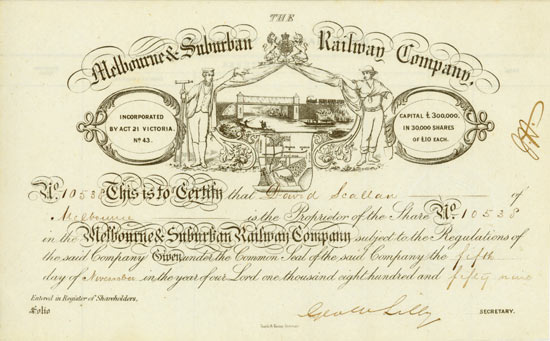 THE
Melbourne & Suburban Railway Company,
INCORPORATED
BY ACT 21 VICTORIA.
No. 43.
CAPITAL £300,000,
IN 30,000 SHARES
OF £10 EACH.
No. 10538 This is to Certify that David Scallan of
Melbourne is the Proprietor of the Share No. 10538
in the Melbourne & Suburban Railway Company subject to the Regulations of
the said Company Given under the Common Seal of the said Company the fifth
day of November in the year of our Lord one thousand eight hundred and fifty nine
Entered in Register of Shareholders.
Folio
SECRETARY.